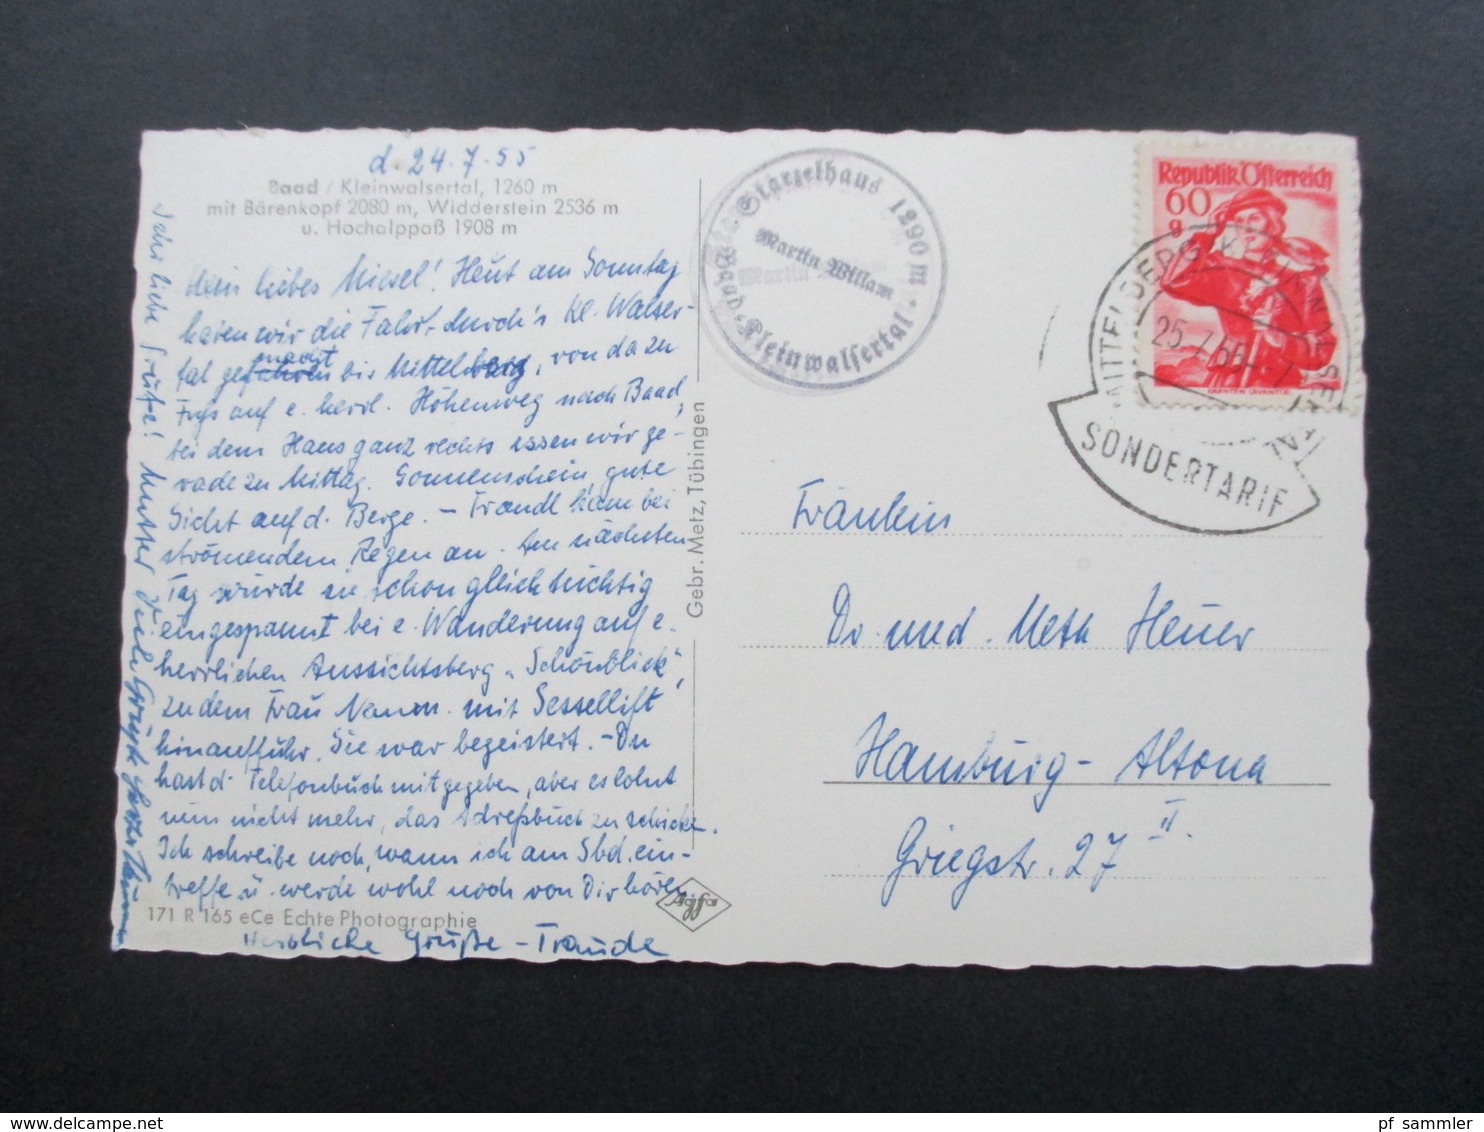 d. 24.7.55
Baad / Kleinwalsertal, 1260 m
mit Bärenkopf 2080 m, Widderstein 2536 m
u. Hochalppaß 1908 m
Mein liebes Miesel! Heut am Sonntag
haben wir die Fahrt durch's Kl. Walser-
tal gemacht bis Mittelberg, von da zu
Fuß auf e. herrl. Höhenweg nach Baad,
bei dem Haus ganz rechts essen wir ge-
rade zu Mittag. Sonnenschein, gute
Sicht auf d. Berge. – Traudl kam bei
strömendem Regen an. Am nächsten
Tag wurde sie schon gleich tüchtig
eingespannt bei e. Wanderung auf e.
herrlichen Aussichtsberg „Schönblick",
zu dem Frau Naum. mit Sessellift
hinauffuhr. Sie war begeistert. – Du
hast d. Telefonbuch mitgegeben, aber es lohnt
nun nicht mehr, das Adreßbuch zu schicken.
Ich schreibe noch, wann ich am Sbd. ein-
treffe u. werde wohl noch von Dir hören.
171 R 165 eCe Echte Photographie
Herzliche Grüße – Traude
Sehr liebe Grüße! Mutter
Gebr. Metz, Tübingen
Agfa
Starzelhaus 1290 m
Martin Willam
Baad-Kleinwalsertal
Republik Österreich
60
g
KÄRNTEN LAVANTTAL
MITTELBERG, KLEINWALSERTAL
25.7.55
SONDERTARIF
Fräulein
Dr. med. Meta Heuer
Hamburg-Altona
Griegstr. 27 II.
pf_sammler